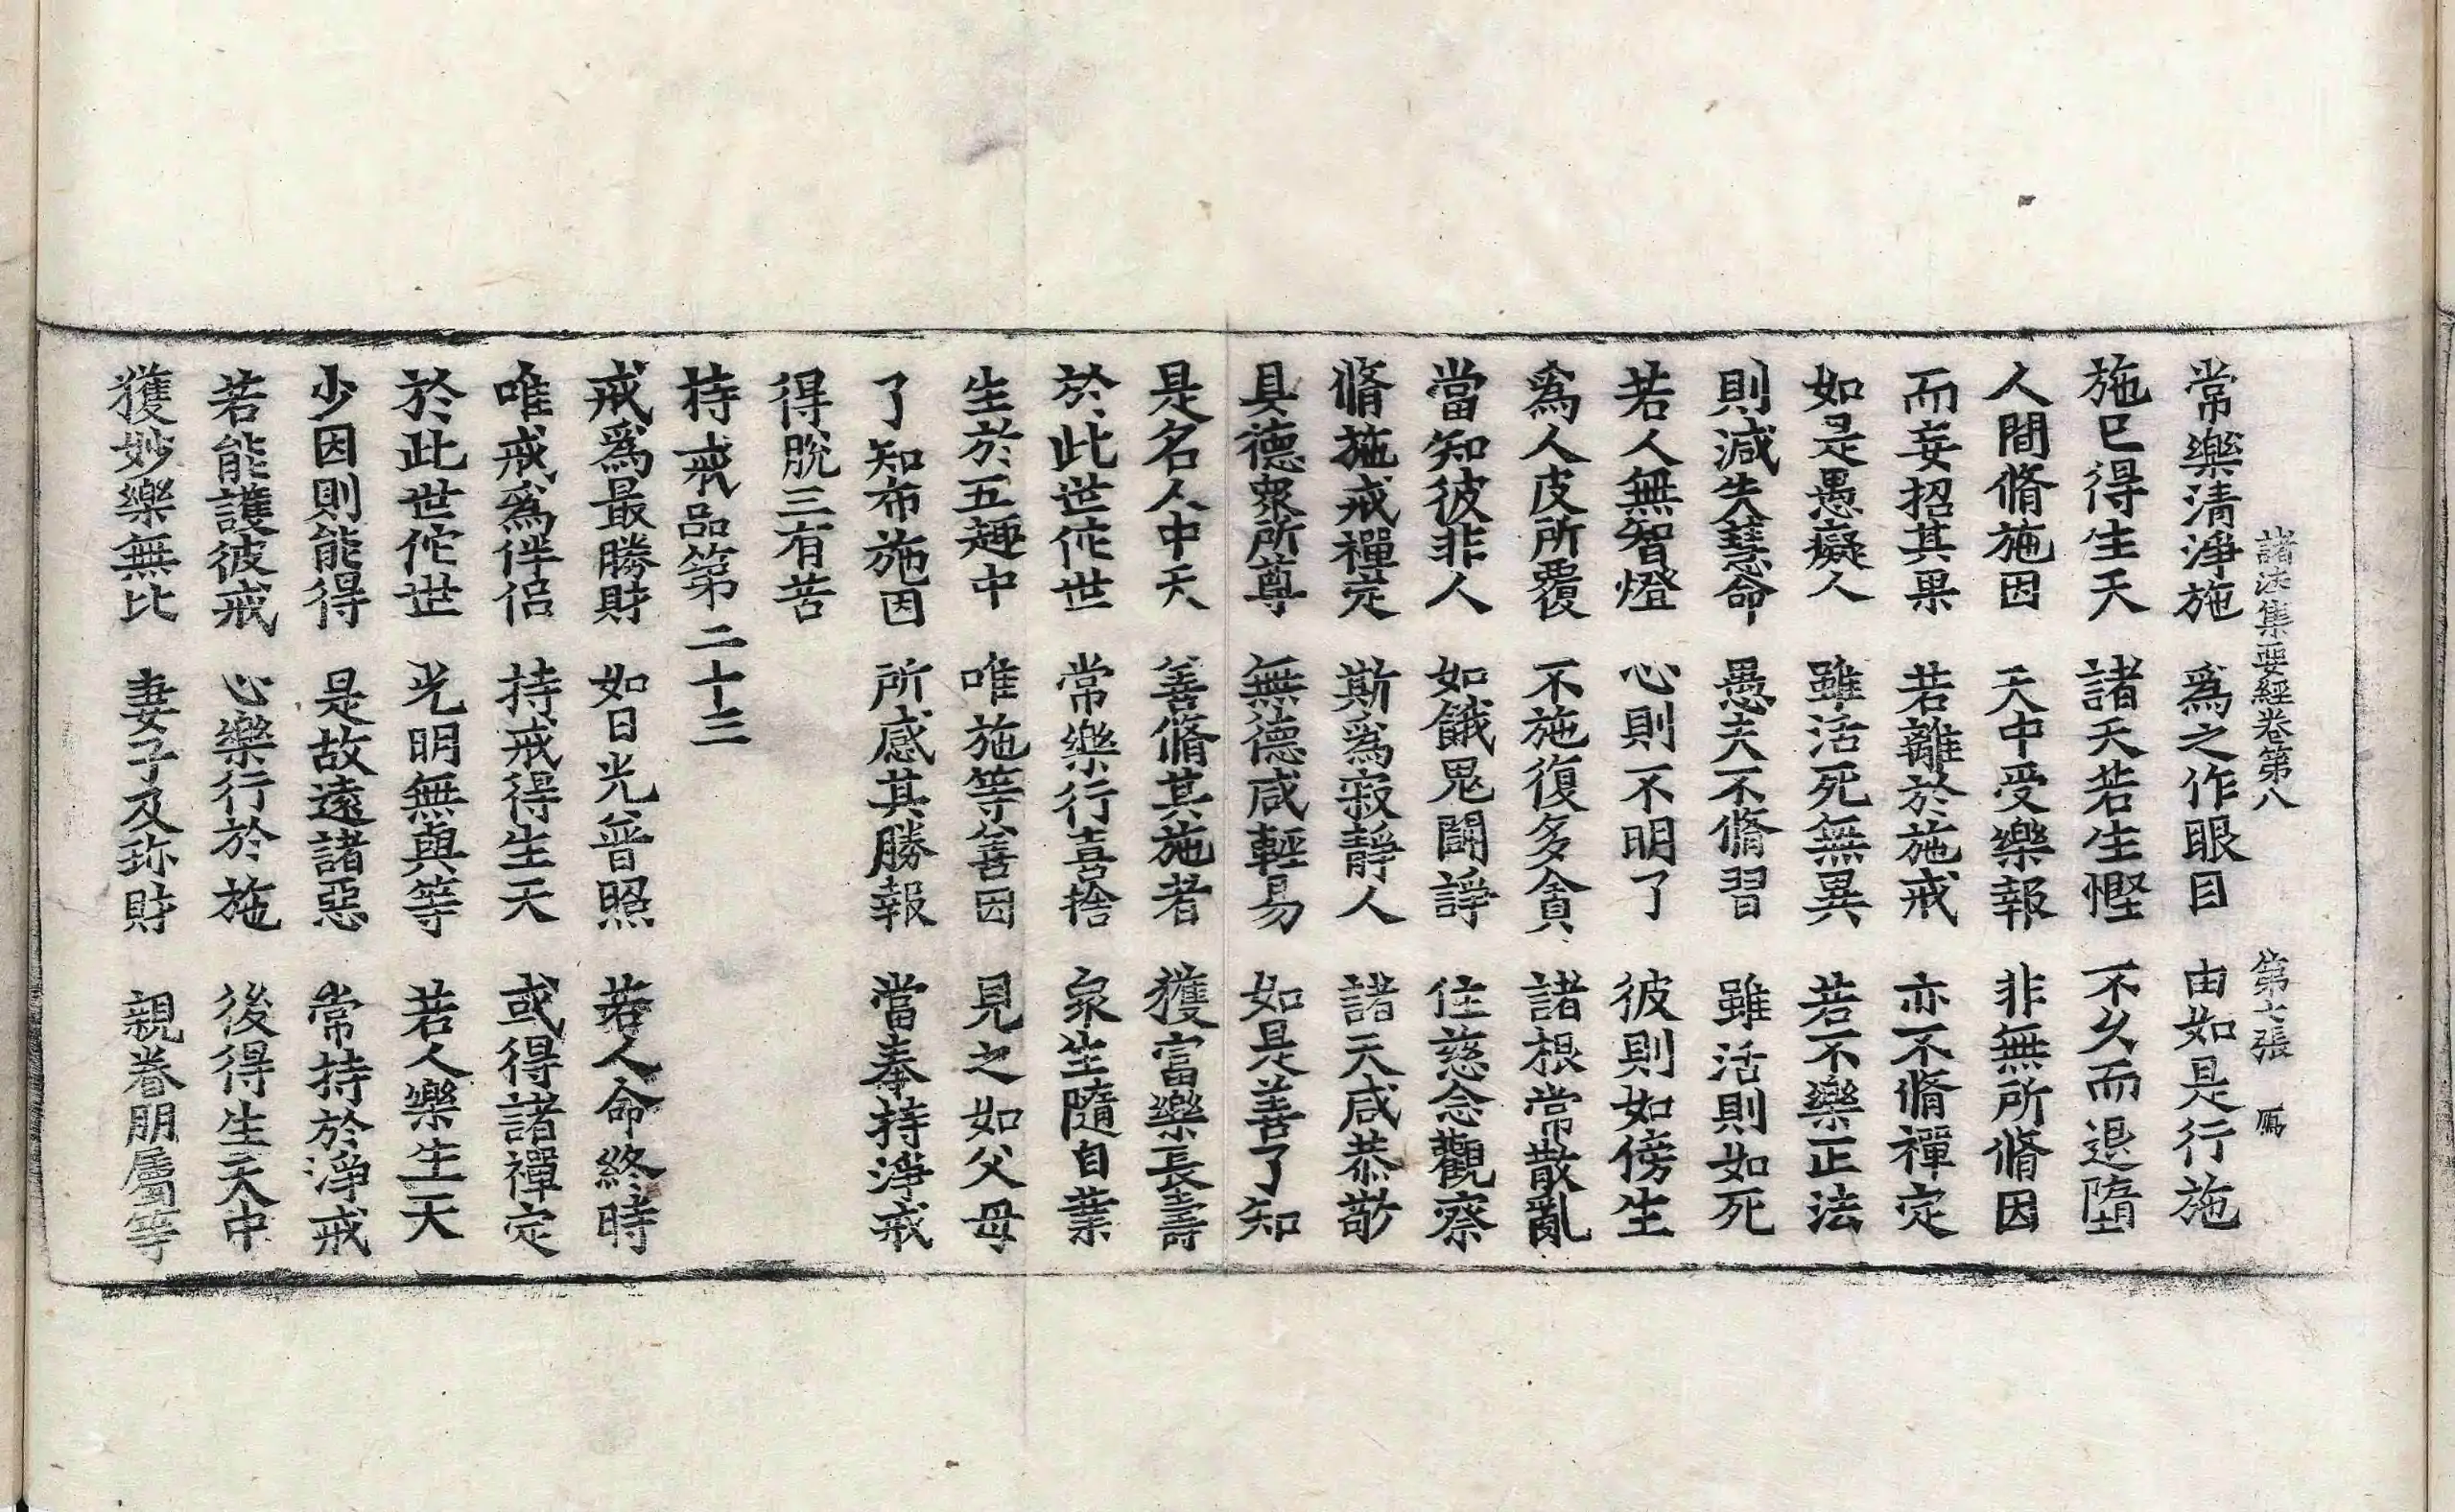 諸法集要經卷第八　第七張　鴈
常樂清淨施　爲之作眼目　由如是行施
施已得生天　諸天若生慳　不久而退墮
人間脩施因　天中受樂報　非無所脩因
而妄招其果　若離於施戒　亦不脩禪定
如是愚癡人　雖活死無異　若不樂正法
則減失慧命　愚夫不脩習　雖活則如死
若人無智燈　心則不明了　彼則如傍生
爲人皮所覆　不施復多貪　諸根常散亂
當知彼非人　如餓鬼鬪諍　住慈念觀察
脩施戒禪定　斯爲寂靜人　諸天咸恭敬
具德衆所尊　無德咸輕易　如是善了知
是名人中天　善脩其施者　獲富樂長壽
於此世佗世　常樂行喜捨　衆生隨自業
生於五趣中　唯施等善因　見之如父母
了知布施因　所感其勝報　當奉持淨戒
得脫三有苦
持戒品第二十三
戒爲最勝財　如日光普照　若人命終時
唯戒爲伴侶　持戒得生天　或得諸禪定
於此世佗世　光明無與等　若人樂生天
少因則能得　是故遠諸惡　常持於淨戒
若能護彼戒　心樂行於施　後得生天中
獲妙樂無比　妻子及珎財　親眷朋屬等